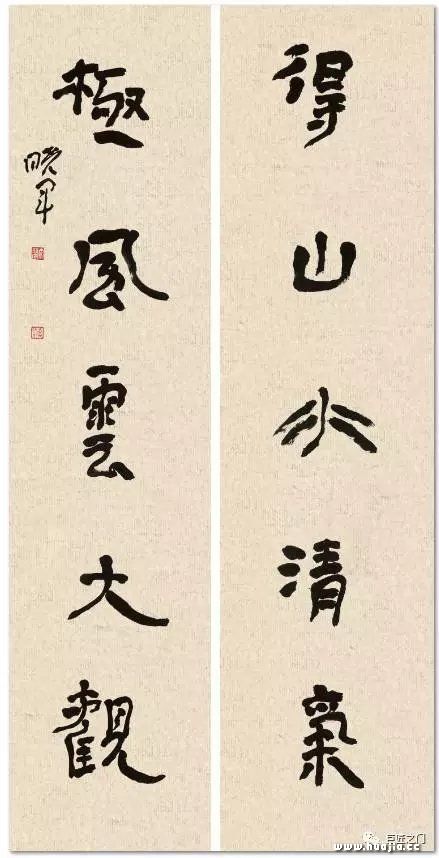 得山水清氣
極風雲大觀
晓军
巨匠之门
www.huajia.cc